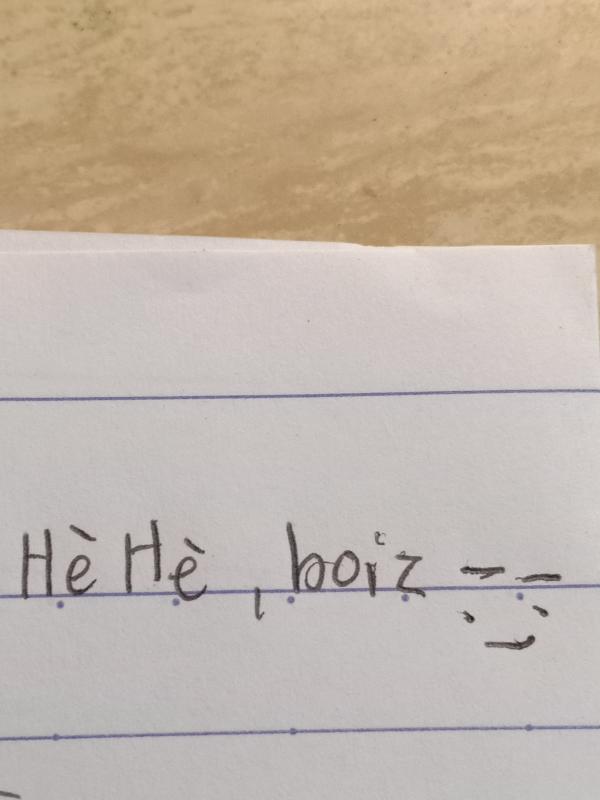 Hè Hè , boiz